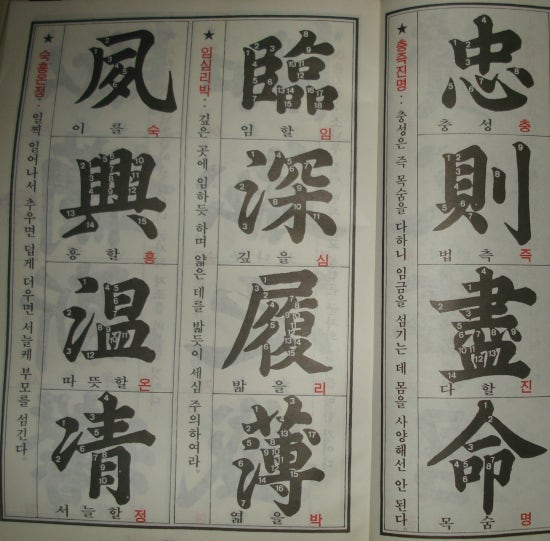 忠
충성 충
則
법측 즉
盡
다할 진
命
목숨 명
★ 충즉진명‥충성은 즉 목숨을 다하니 임금을 섬기는 데 몸을 사양해선 안 된다
臨
임할 임
深
깊을 심
履
밟을 리
薄
엷을 박
★ 임심리박‥깊은 곳에 임하듯 하며 얇은 데를 밟듯이 세심 주의하여라.
夙
이를 숙
興
흥할 흥
温
따뜻할 온
凊
서늘할 정
★ 숙흥온정‥일찍 일어나서 추우면 덥게 더우면 서늘케 부모를 섬긴다.